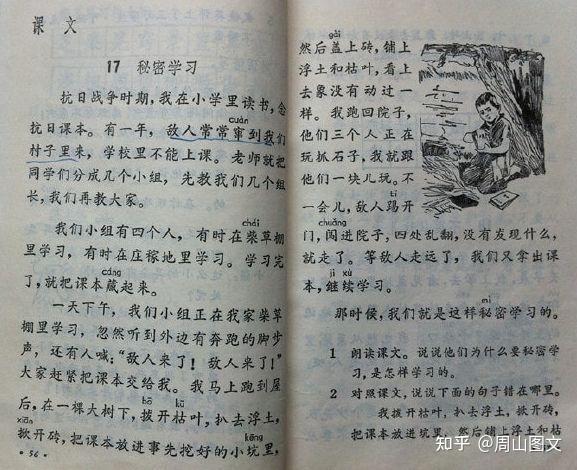 课文
17 秘密学习
抗日战争时期，我在小学里读书，念
抗日课本。有一年，敌人常常窜到我们
cuàn
村子里来，学校里不能上课。老师就把
同学们分成几个小组，先教我们几个组
长，我们再教大家。
我们小组有四个人，有时在柴草棚
chái
里学习，有时在庄稼地里学习。学习完
了，就把课本藏起来。
cáng
一天下午，我们小组正在我家柴草
棚里学习，忽然听到外边有奔跑的脚步
声，还有人喊：“敌人来了！敌人来了！”
大家赶紧把课本交给我。我马上跑到屋
后，在一棵大树下，拨开枯叶，扒去浮土，
bō kū
掀开砖，把课本放进事先挖好的小坑里，
xiān kēng
· 56 ·
gài
然后盖上砖，铺上
浮土和枯叶，看上
去象没有动过一
样。我跑回院子，
他们三个人正在
玩抓石子，我就跟
他们一块儿玩。不
一会儿，敌人踢开
tī
门，闯进院子，四处乱翻，没有发现什么，
chuǎng
就走了。等敌人走远了，我们又拿出课
本，继续学习。
jì xù
那时侯，我们就是这样秘密学习的。
mì
1 朗读课文。说说他们为什么要秘密学
习，是怎样学习的。
2 对照课文，说说下面的句子错在哪里。
我拨开枯叶，扒去浮土，掀开砖，
把课本放进坑里，然后铺上浮土和枯
知乎 @周山图文